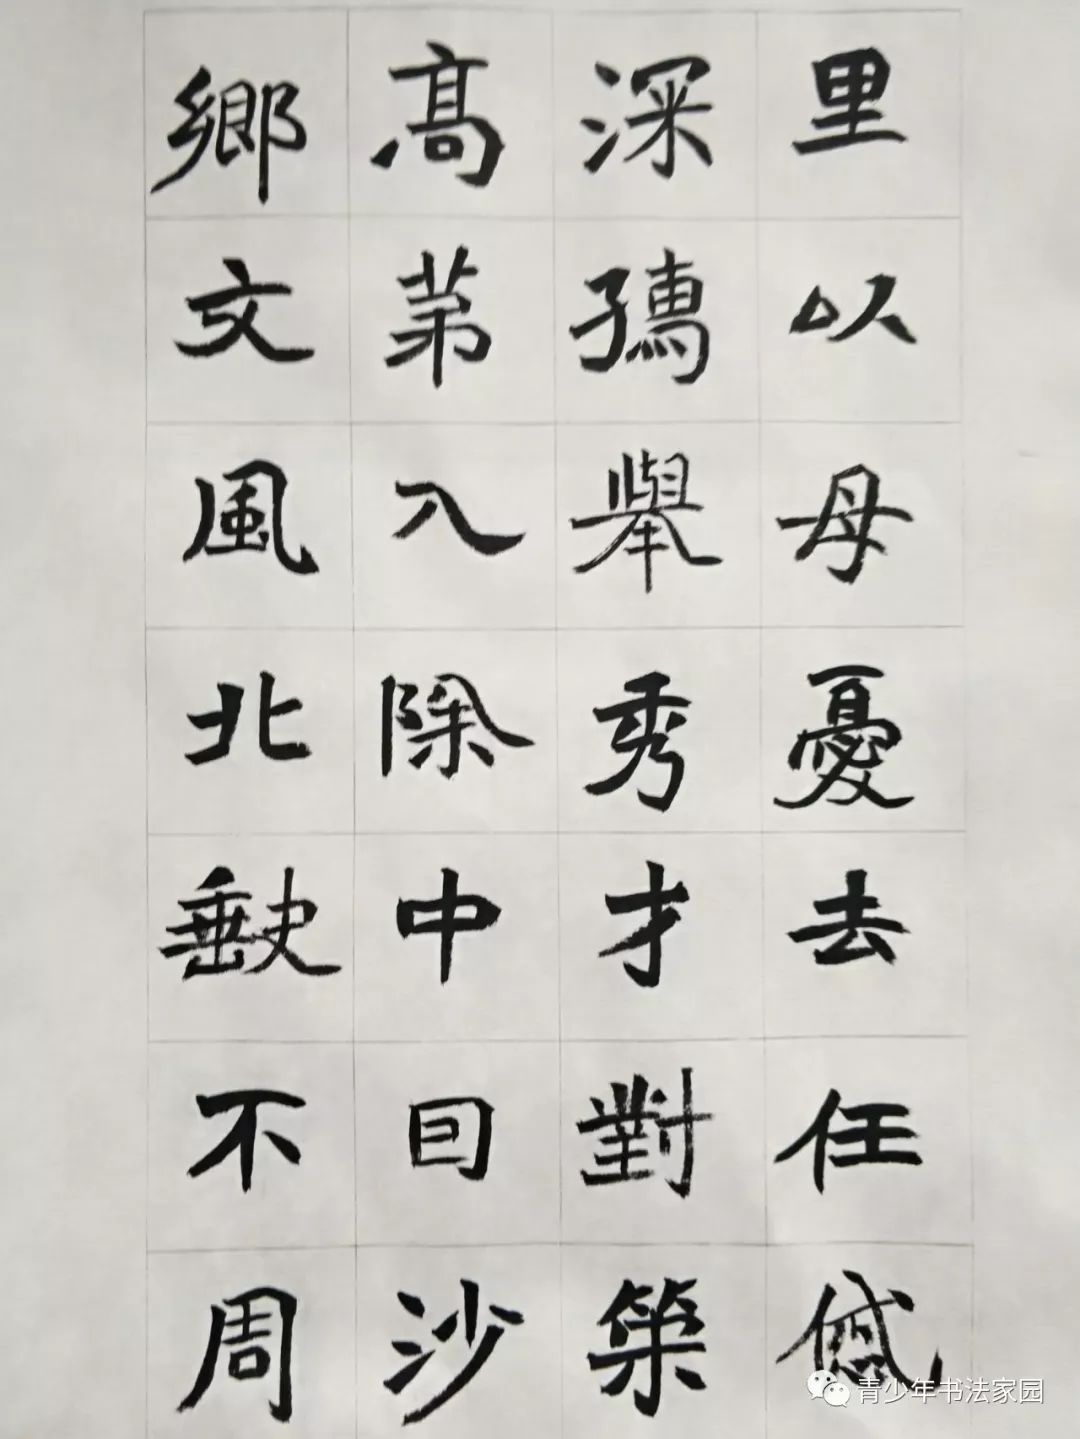 里以母憂去任
深舉秀才對策
高第入除中沙
鄉文風北不周
青少年书法家园